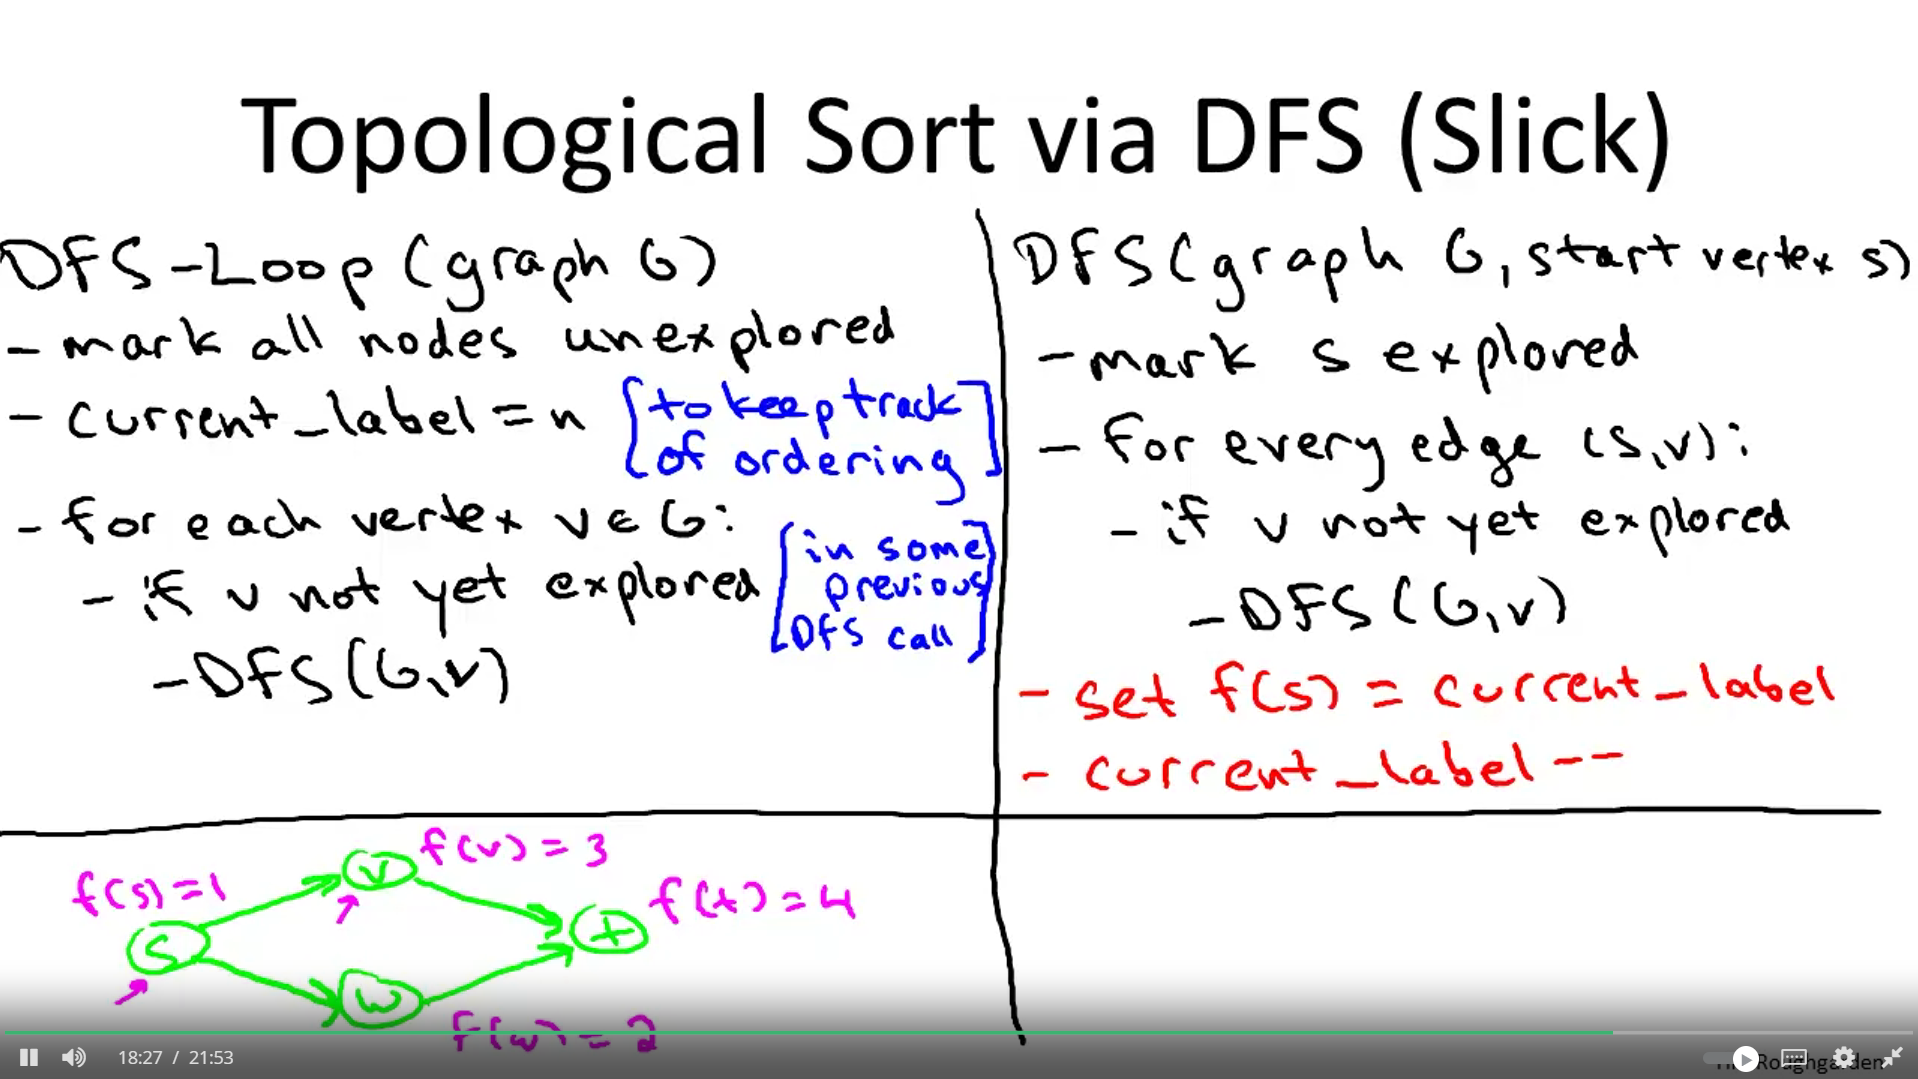 Topological Sort via DFS (Slick)
DFS-Loop (graph G)
- mark all nodes unexplored
- current_label = n [to keep track
of ordering]
- for each vertex v ∈ G:
- if v not yet explored [in some
previous
DFS call]
- DFS(G,v)
DFS(graph G, start vertex s)
- mark s explored
- for every edge (s,v):
- if v not yet explored
- DFS(G,v)
- set f(s) = current_label
- current_label --
f(s)=1
f(v)=3
f(t)=4
f(w)=2
s
v
w
t
18:27 / 21:53
Roughgarden